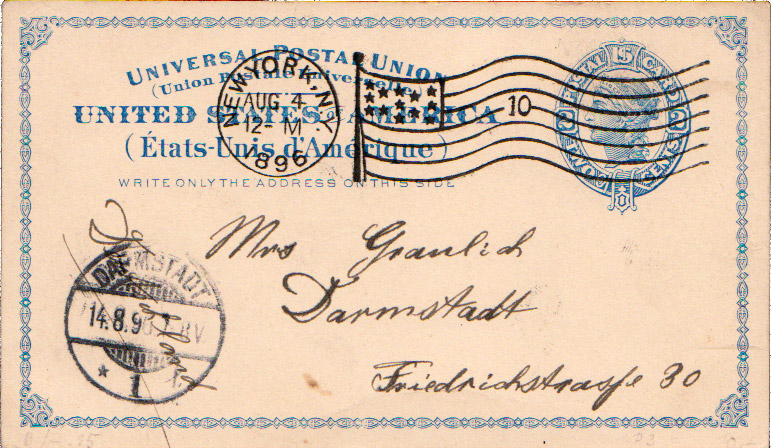 UNIVERSAL POSTAL UNION
(Union postale universelle)
UNITED STATES OF AMERICA
(États-Unis d'Amérique)
WRITE ONLY THE ADDRESS ON THIS SIDE
NEW YORK, N.Y.
AUG 4
12-M
1896
10
Mrs Graulich
Darmstadt
Friedrichstrasse 30
DARMSTADT
14.8.96
* 1